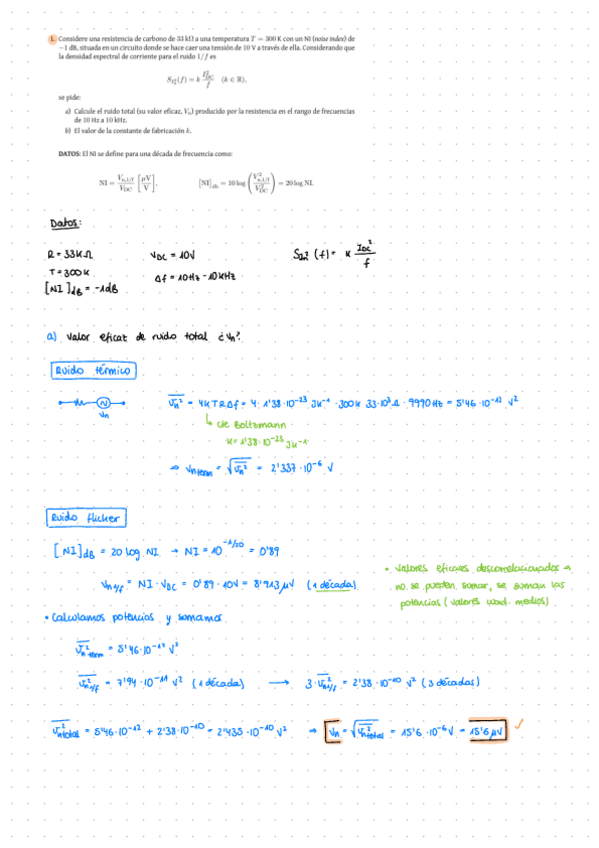 1. Considere una resistencia de carbono de 33 kΩ a una temperatura T = 300 K con un NI (noise index) de
−1 dB, situada en un circuito donde se hace caer una tensión de 10 V a través de ella. Considerando que
la densidad espectral de corriente para el ruido 1/f es
S_{I_n^2}(f) = k I_{DC}^2 / f (k ∈ ℝ),
se pide:
a) Calcule el ruido total (su valor eficaz, V_n) producido por la resistencia en el rango de frecuencias
de 10 Hz a 10 kHz.
b) El valor de la constante de fabricación k.
DATOS: El NI se define para una década de frecuencia como:
NI = V_{n,1/f} / V_{DC} [μV / V], [NI]_{db} = 10 log (V_{n,1/f}^2 / V_{DC}^2) = 20 log NI.
Datos:
R = 33KΩ V_{DC} = 10V S_{In^2} (f) = K I_{DC}^2 / f
T = 300K Δf = 10Hz - 10KHz
[NI]_{dB} = -1dB
a) Valor eficaz de ruido total ¿Vn?
Ruido térmico
Vn
Vn² = 4KTRΔf = 4 · 1'38·10⁻²³ JK⁻¹ · 300K 33·10³ Ω · 9990Hz = 5'46·10⁻¹² V²
↳ cte Boltzmann
K = 1'38·10⁻²³ JK⁻¹
⇒ Vn term = √Vn² = 2'337·10⁻⁶ V
Ruido flicker
[NI]_{dB} = 20 log NI → NI = 10^{-1/20} = 0'89
Vn 1/f = NI · V_{DC} = 0'89 · 10V = 8'913 μV (1 década)
• Valores eficaces descorrelacionados
no se pueden sumar, se suman las
potencias (valores cuad. medios)
• Calculamos potencias y sumamos
Vn² term = 5'46·10⁻¹² V²
Vn² 1/f = 7'94·10⁻¹¹ V² (1 década) → 3 · Vn² 1/f = 2'38·10⁻¹⁰ V² (3 décadas)
Vn² total = 5'46·10⁻¹² + 2'38·10⁻¹⁰ = 2'435·10⁻¹⁰ V² ⇒ Vn = √Vn² total = 15'6·10⁻⁶ V = 15'6 μV ✓